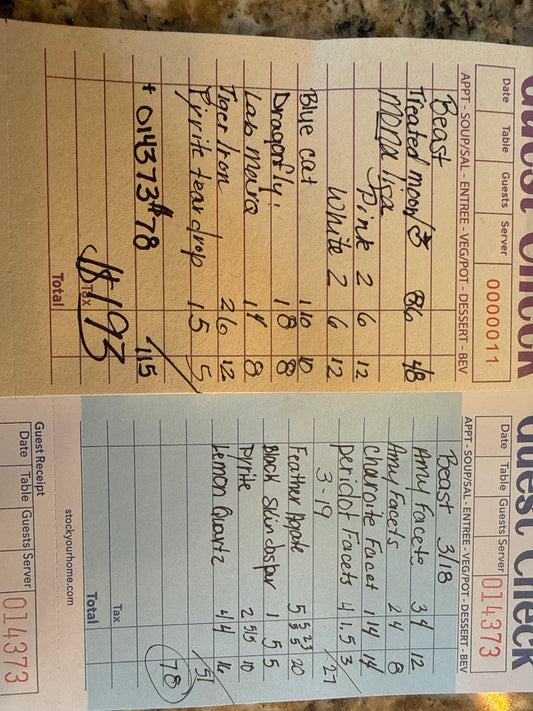 Guest Check
Date Table Guests Server
0000011
APPT - SOUP/SAL - ENTREE - VEG/POT - DESSERT - BEV
Beast
Treated moon/ 8 6 48
Mona lisa
Pink 2 6 12
White 2 6 12
Blue cat 1 10 10
Dragonfly. 1 8 8
Lab Meura 1 4 8
Tiger Iron 2 6 12
Pyrite teardrop 1 5 5
115
* 014373 # 78
Tax
$193
Total
Guest Check
Date Table Guests Server
014373
APPT - SOUP/SAL - ENTREE - VEG/POT - DESSERT - BEV
Beast 3/18
Amy Facets 3 4 12
Amy Facets 2 4 8
Charoite Facet 1 14 14
Peridot Facets 4 1.5 3
/27
3-19
Feather Agate 5 5 5 23 20
Black Skin Jasper 1 5 5
Pyrite 2 5/5 10
Lemon Quartz 4 4 16
/51
78
Tax
Total
stockyourhome.com
Guest Receipt
Date Table Guests Server
014373